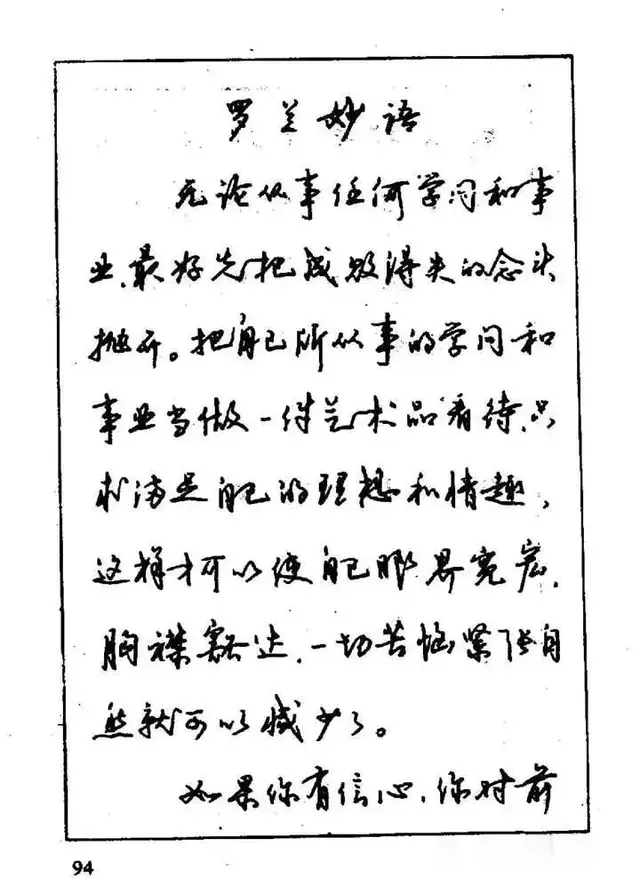 罗兰妙语
无论从事任何学问和事
业,最好先把成败得失的念头
抛开。把自己所从事的学问和
事业当做一件艺术品看待,只
求满足自己的理想和情趣,
这样才可以使自己眼界宽宏,
胸襟豁达,一切苦恼紧张自
然就可以减少了。
如果你有信心,你对前
94